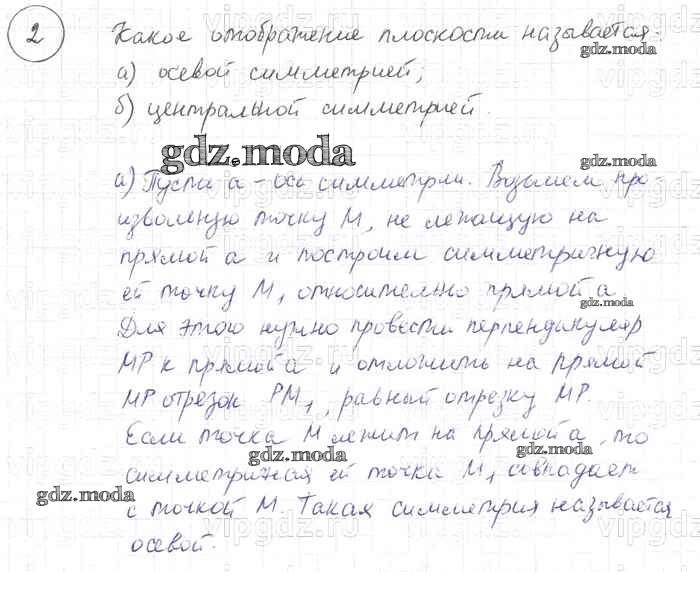 2 Какое отображение плоскости называется:
gdz.moda
а) осевой симметрией;
б) центральной симметрией.
gdz.moda
gdz.moda
а) Пусть а - ось симметрии. Возьмем про-
извольную точку М, не лежащую на
прямой а и построим симметричную
ей точку М₁ относительно прямой а.
gdz.moda
Для этого нужно провести перпендикуляр
МР к прямой а и отложить на прямой
МР отрезок РМ₁, равный отрезку МР.
Если точка М лежит на прямой а, то
gdz.moda
gdz.moda
симметричная ей точка М₁ совпадает
gdz.moda
с точкой М. Такая симметрия называется
осевой.